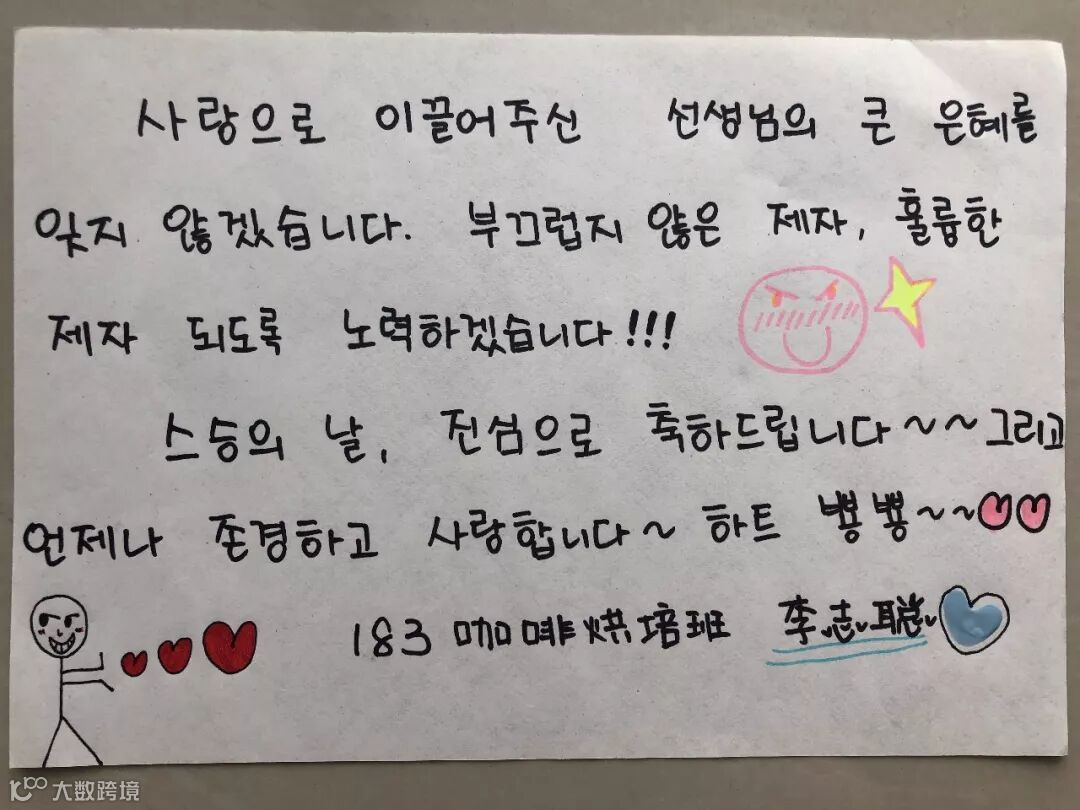 사랑으로 이끌어주신 선생님의 큰 은혜를
잊지 않겠습니다. 부끄럽지 않은 제자, 훌륭한
제자 되도록 노력하겠습니다!!!
스승의 날, 진심으로 축하드립니다~~그리고
언제나 존경하고 사랑합니다~ 하트 뿅뿅~~
183 咖啡烘培班 李志聪
大数跨境